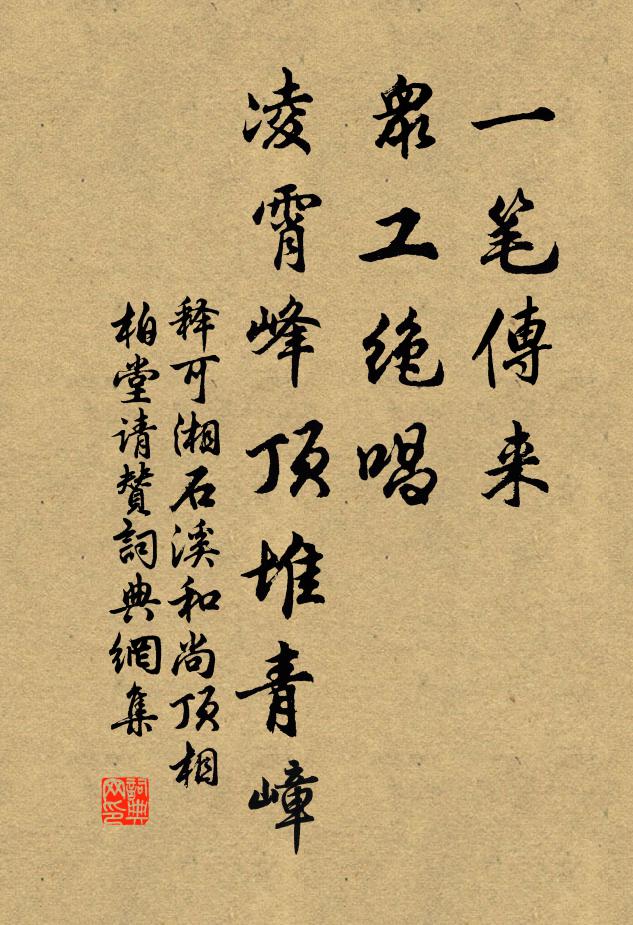 一笔傳来
眾工绝唱
凌霄峰頂堆青嶂
释可湘石溪和尚頂相
柏堂请贊詞典網集
詞典
网印